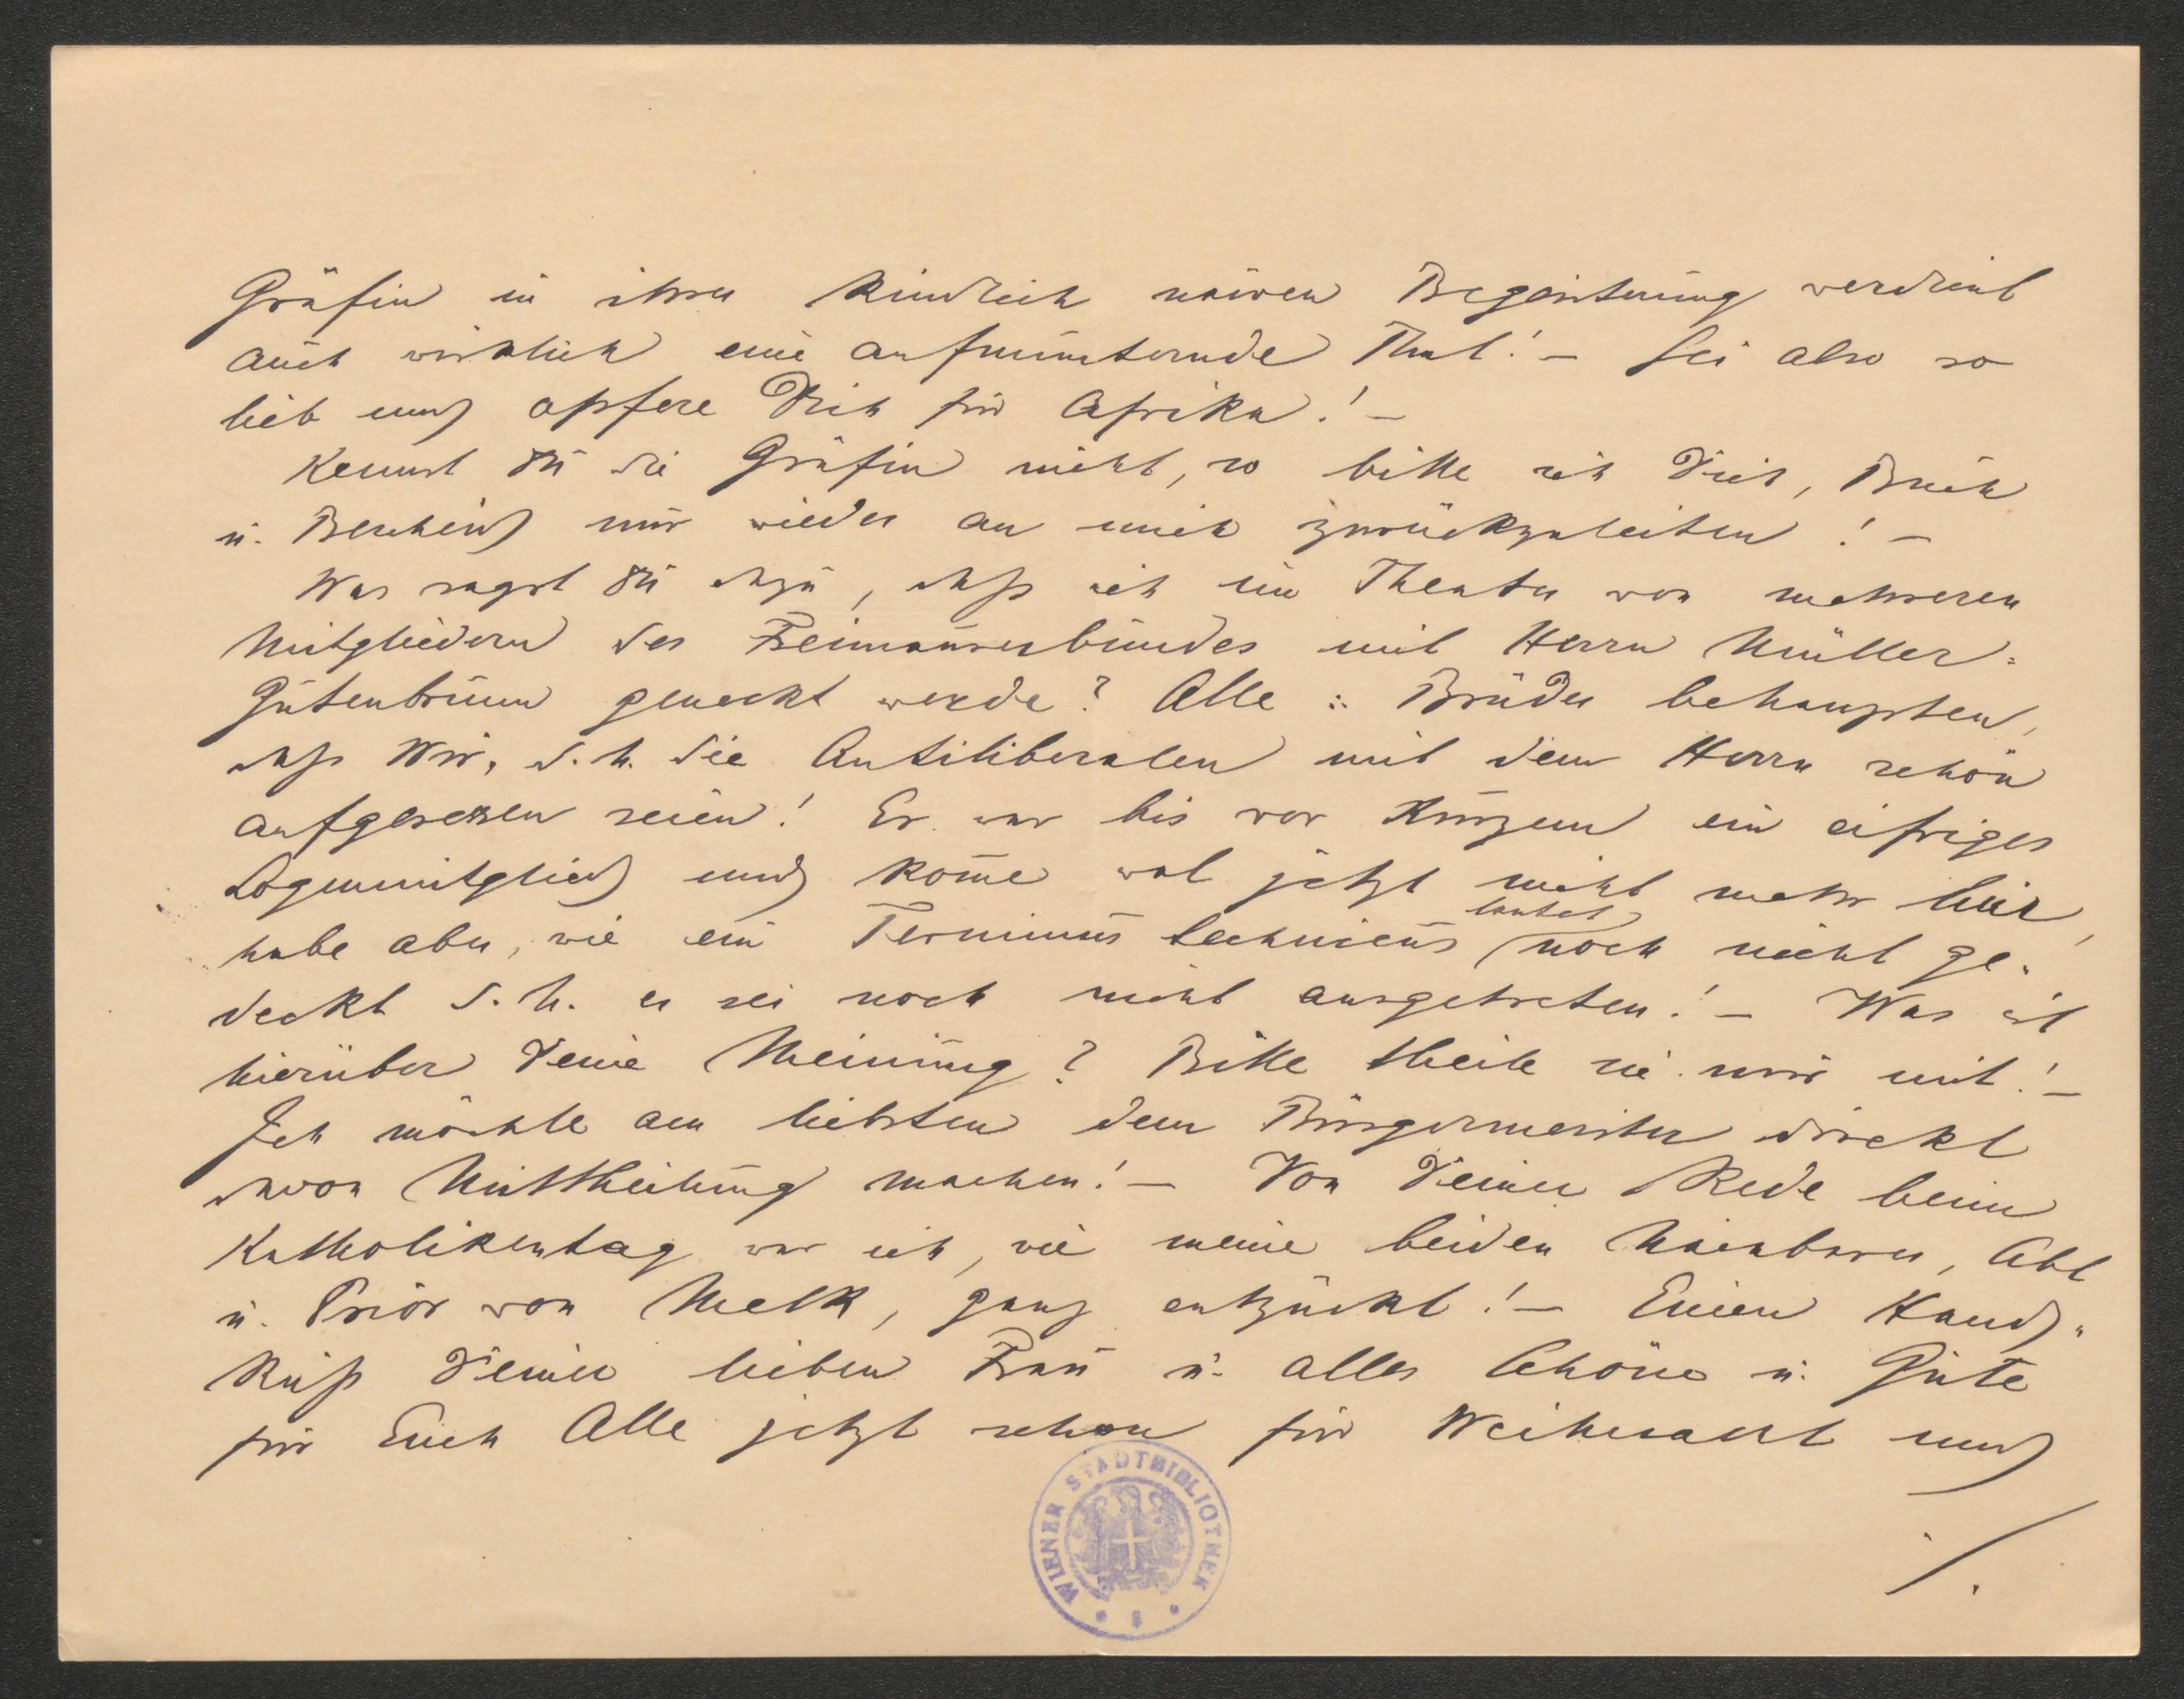 Gräfin in ihrer kindlich naiven Begeisterung verdient
auch wirklich eine aufmunternde That! – Sei also so
lieb und opfere Dich für Afrika! –
Kennst Du die Gräfin nicht, so bitte ich Dich, Buch
u. Bescheid mir wieder an mich zurückzuleiten! –
Was sagst Du dazu, daß ich im Theater von mehreren
Mitgliedern des Freimaurerbundes mit Herrn Müller=
Gutenbrunn geneckt werde? Alle ∴ Brüder behaupten,
daß Wir, d. h. die Antiliberalen mit dem Herrn schön
aufgesessen seien! Er war bis vor Kurzem ein eifriges
Logenmitglied und kom̄e wol jetzt nicht mehr hin,
habe aber, wie ein Terminus technicus lautet noch nicht ge=
deckt d. h. er sei noch nicht ausgetreten! – Was ist
hierüber Deine Meinung? Bitte theile sie mir mit! –
Ich möchte am liebsten dem Bürgermeister direkt
davon Mittheilung machen! – Von Deiner Rede beim
Katholikentag war ich, wie meine beiden Nachbarn, Abt
u. Prior von Melk, ganz entzückt! – Einen Hand=
kuß Deiner lieben Frau u. alles Schöne u. Gute
für Euch Alle jetzt schon für Weihnacht und
./.
WIENER STADTBIBLIOTHEK